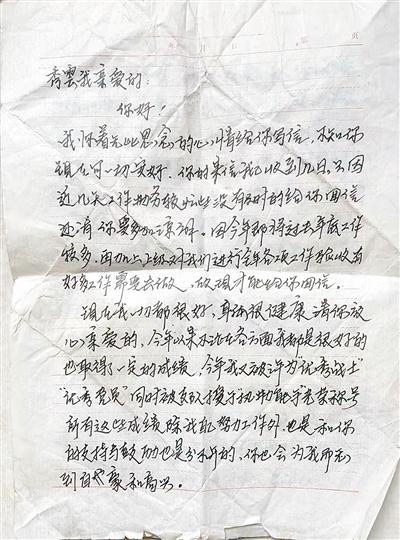 年 月 日 第 页
秀雲我亲爱的:
你好!
我怀着无比思念的心情给你写信,不知你
现在可一切安好。你的来信我已收到几日,只因
近几天工作劳较忙些没有及时的给你回信
还请你要多加凉解。因今年即将过去年底工作
较多,再加上上级对我们进行全年各项工作验收有
好多工作需要去做,故现才能给你回信。
现在我一切都很好,身体很健康请你放
心亲爱的,今年以来不论在各方面我都是很好的
也取得了一定的成绩,今年我又被评为"优秀战士"
"优秀党员"同时被支队授予"执勤能手"光荣称号
所有这些成绩除我自己努力工作外,也是和你
的支持与鼓励也是分不开的,你也会为我而感
到自豪和高兴。